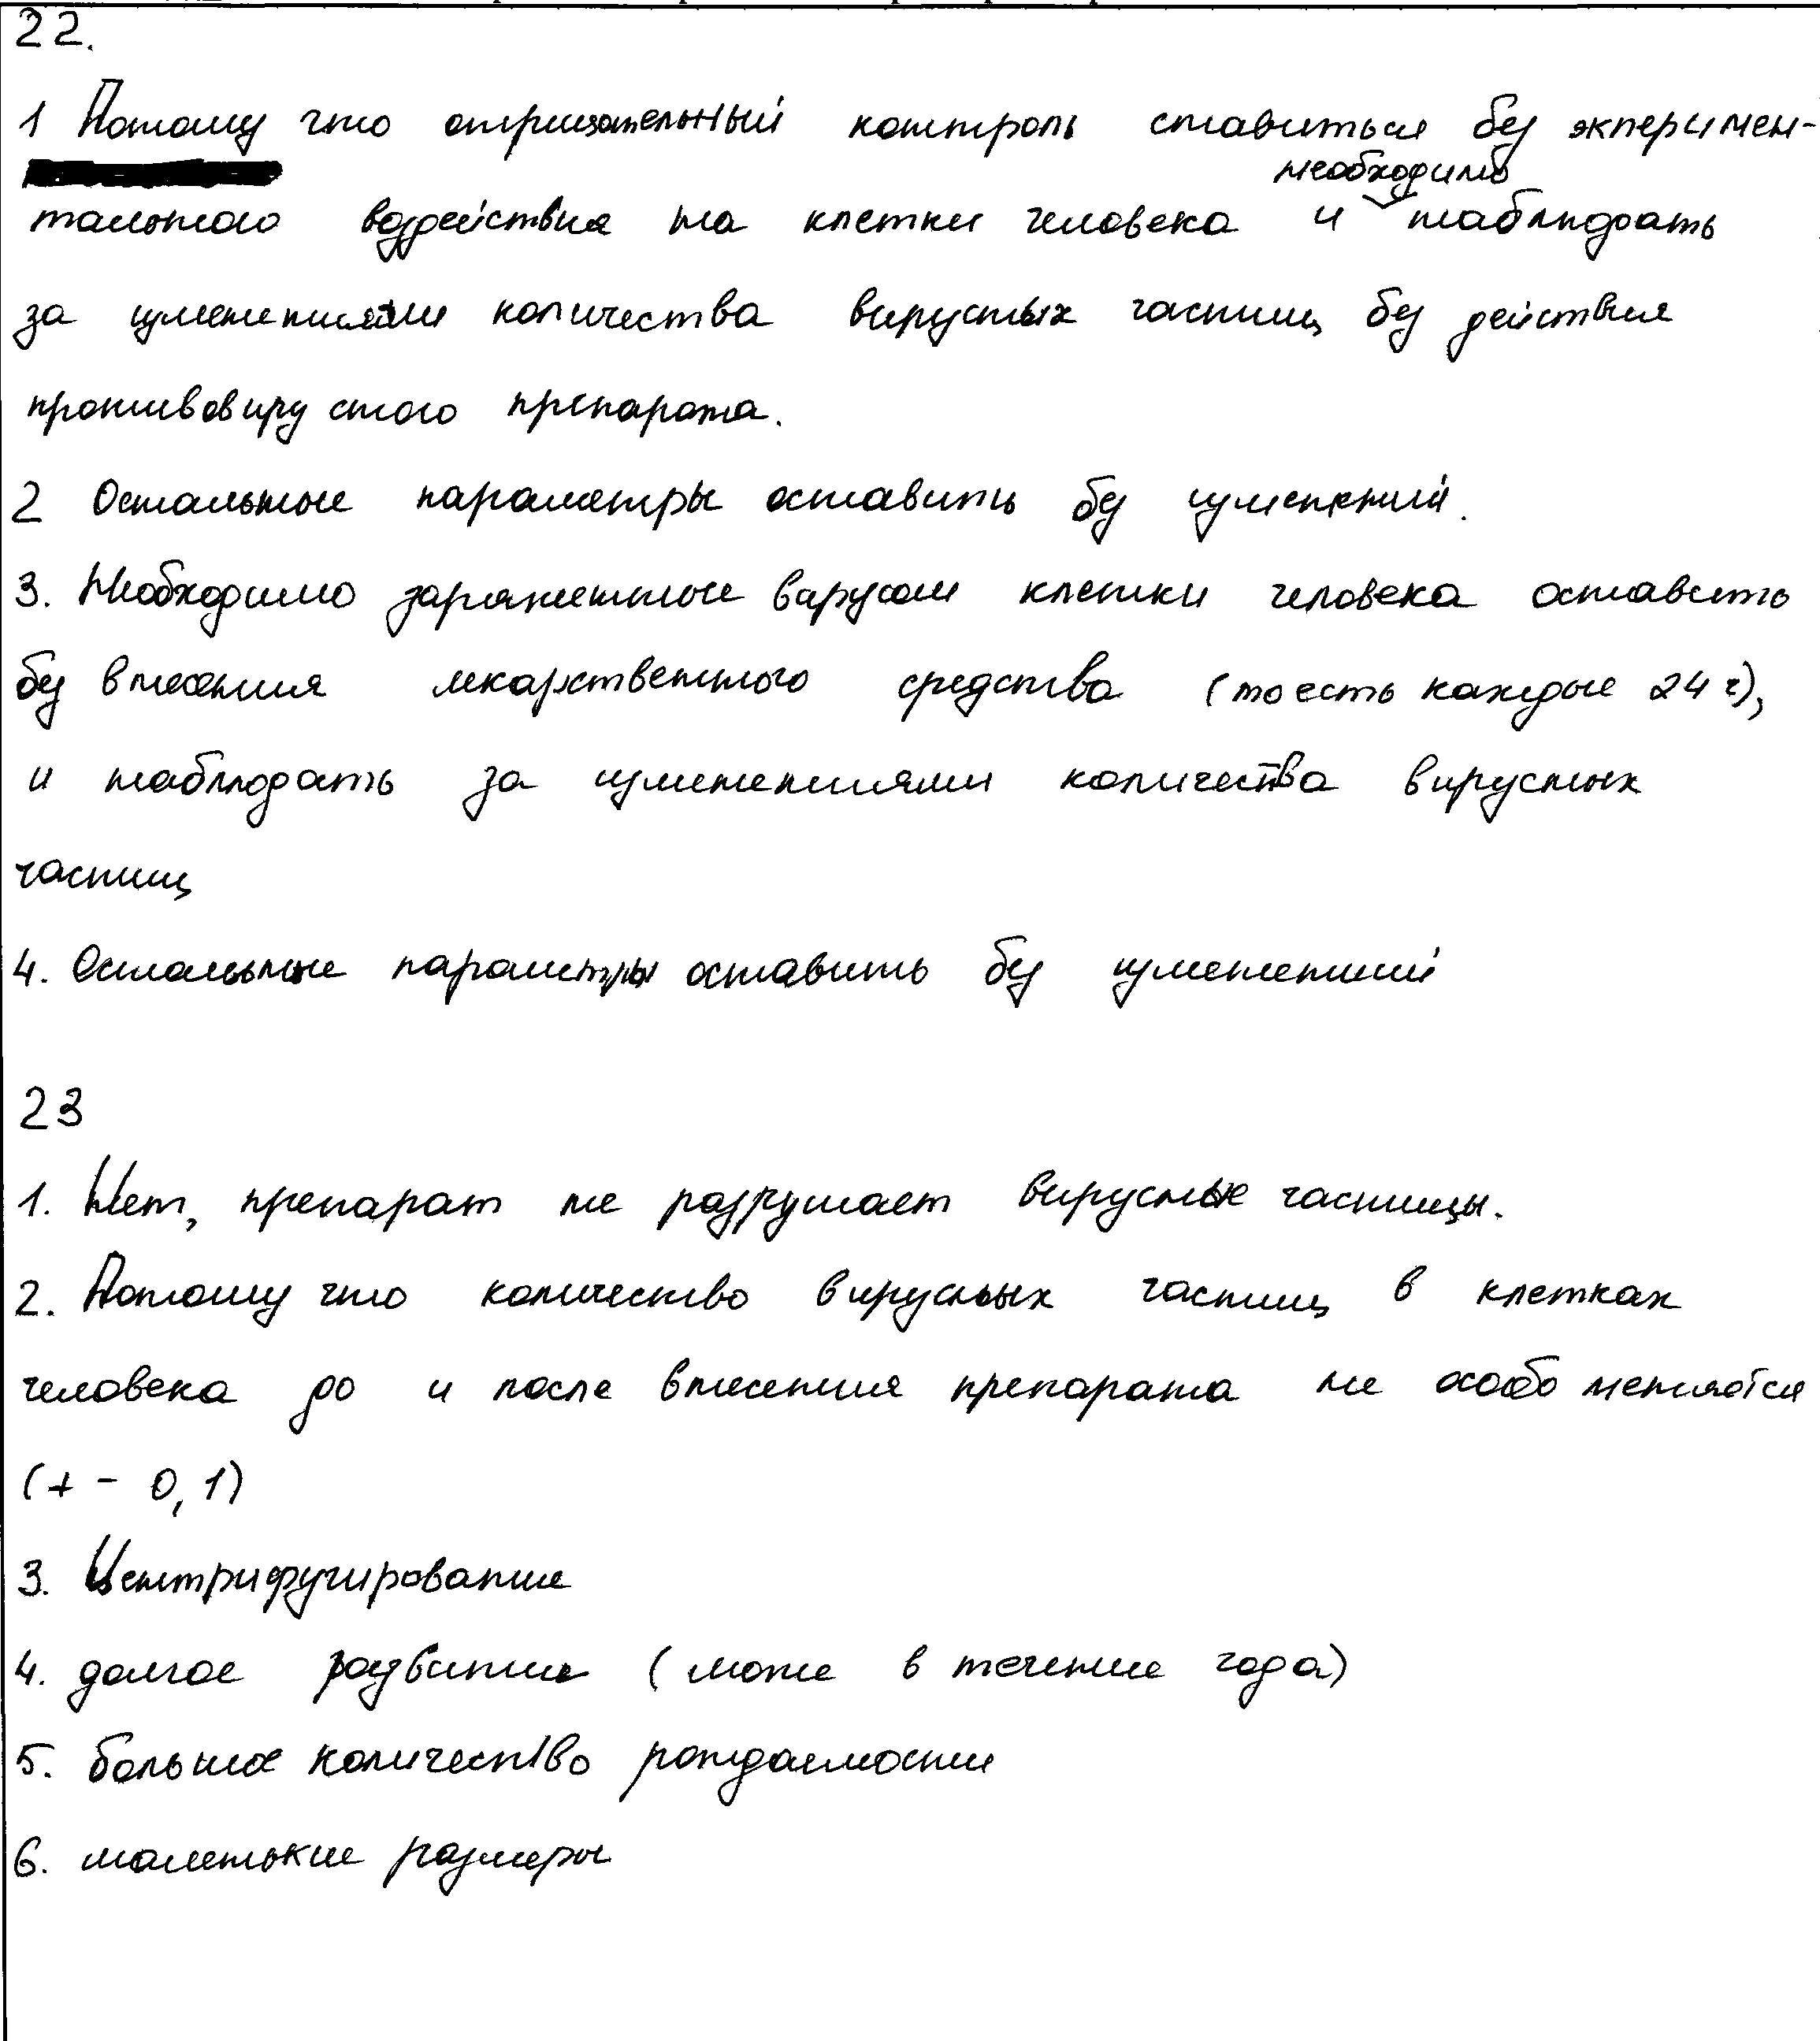 22.
1 Потому что отрицательный контроль ставиться без эксперимен-
необходимо
тального воздействия на клетки человека и наблюдать
за изменениями количества вирусных частиц без действия
противовирусного препарата.
2 Остальные параметры оставить без изменений.
3. Необходимо зараженные варусом клетки человека оставить
без внесения лекарственного средства (то есть каждые 24 ч),
и наблюдать за изменениями количества вирусных
частиц
4. Остальные параметры оставить без изменений
23
1. Нет, препарат не разрушает вирусные частицы.
2. Потому что количество вирусных частиц в клетках
человека до и после внесения препарата не особо меняется
(+ - 0,1)
3. Центрифугирование
4. долгое развитие (може в течение года)
5. большое количество рождаемости
6. маленькие размеры